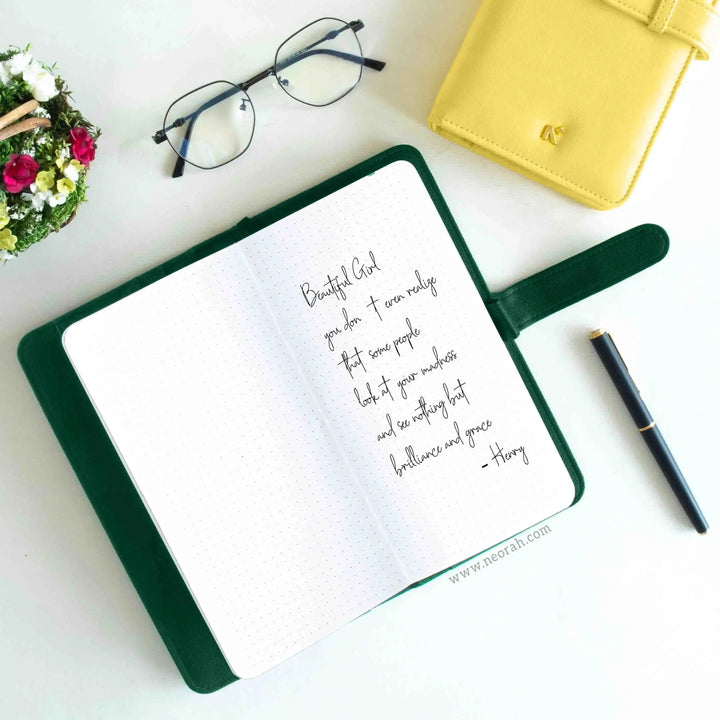 Beautiful Girl
you don't even realize
that some people
look at your madness
and see nothing but
brilliance and grace
- Henry
www.neorah.com